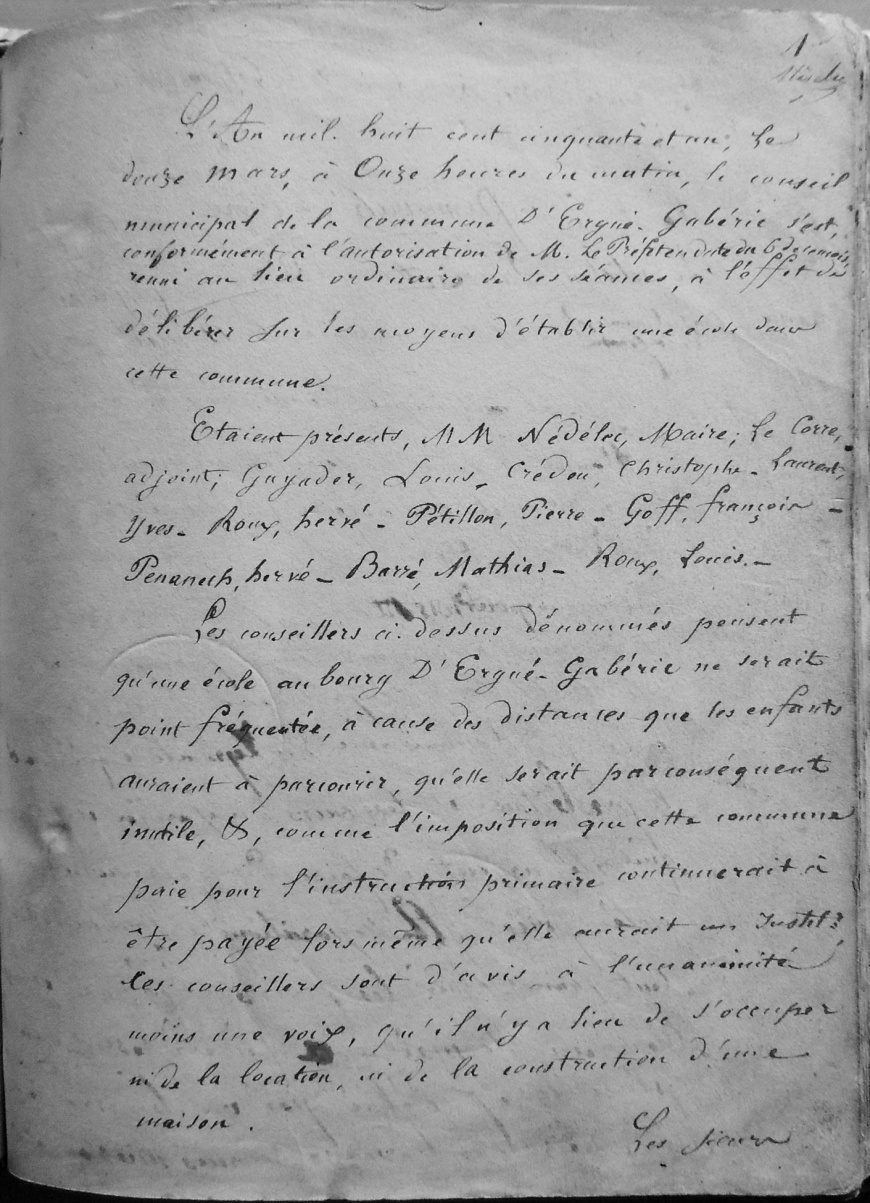 1
L'An mil huit cent cinquante et un, Le
douze mars, à Onze heures du matin, le conseil
municipal de la commune D'Ergué-Gabéric s'est,
conformément à l'autorisation de M. Le Préfet en date du 6 de ce mois,
réuni au lieu ordinaire de ses séances, à l'effet de
délibérer sur les moyens d'établir une école dans
cette commune.
Etaient présents, MM Nédélec, Maire; Le Corre,
adjoint; Guyader, Louis - Crédou, Christophe - Laurent,
Yves - Roux, hervé - Pétillon, Pierre - Goff, françois -
Penanech, hervé - Barré, Mathias - Roux, Louis. -
Les conseillers ci-dessus dénommés pensent
qu'une école au bourg D'Ergué-Gabéric ne serait
point fréquentée, à cause des distances que les enfants
auraient à parcourir, qu'elle serait par conséquent
inutile, &, comme l'imposition que cette commune
paie pour l'instruction primaire continuerait à
être payée lors même qu'elle aurait un Instit.r,
les conseillers sont d'avis à l'unanimité
moins une voix, qu'il n'y a lieu de s'occuper
ni de la location, ni de la construction d'une
maison.
Les sieurs